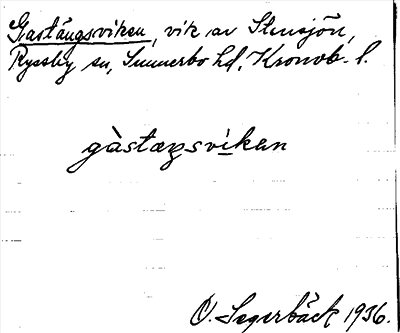 Gastängsviken, vik av Stensjön,
Ryssby sn, Sunnerbo hd, Kronob. l.
gàstæŋsvìkan
O. Segerbäck 1936.